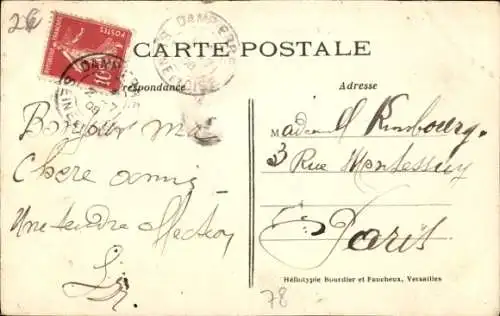 26
POSTES
10
DAMPIERRE
SEINE
08
CARTE POSTALE
respondance
Adresse
Bonjour ma
Chere amie
Une tendre affection
Madame
3 Rue Montessuy
Paris
Héliotypie Bourdier et Faucheux, Versailles
78